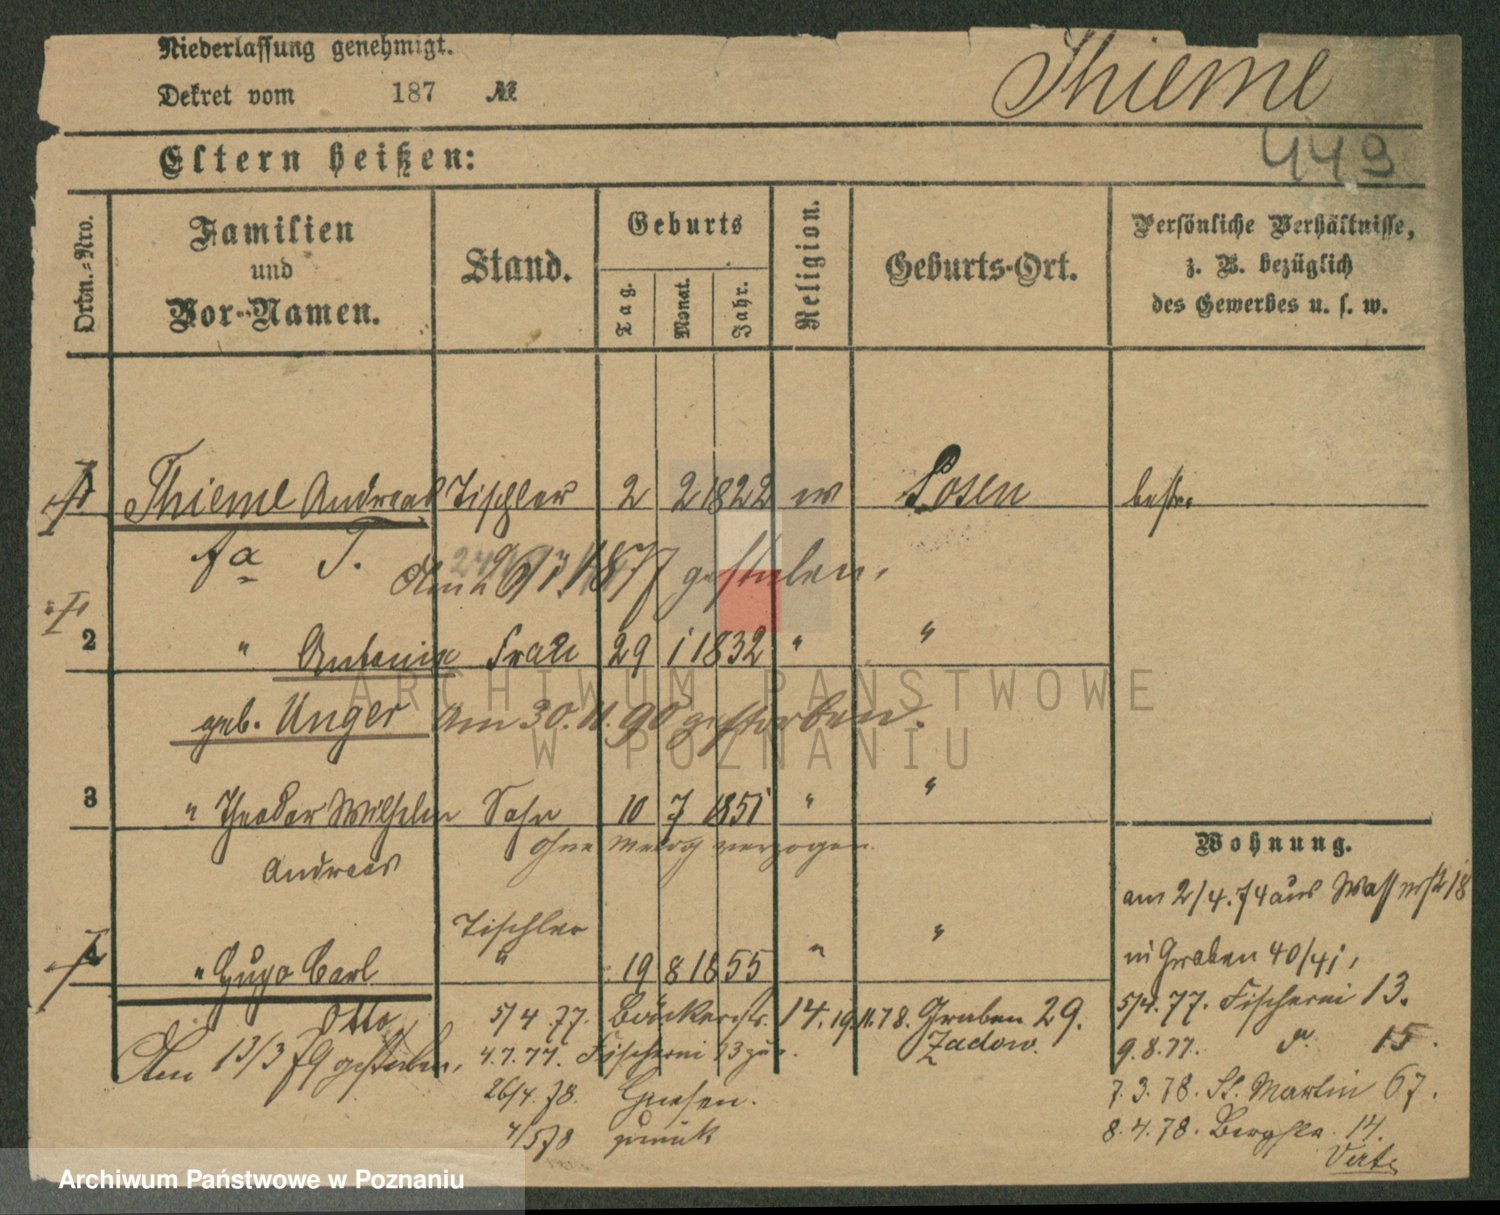 Niederlassung genehmigt.
Dekret vom 187 №
Thieme
449
Eltern heißen:
Ordn.=Nro.
Familien und Vor=Namen.
Stand.
Geburts
Tag.
Monat.
Jahr.
Religion.
Geburts=Ort.
Persönliche Verhältnisse, z. B. bezüglich des Gewerbes u. s. w.
1 Thieme Andreas Tischler 2 2 1822 ev Posen
fa T.
1877 gestorben.
2 " Antonie Frau 29 1 1832 " "
geb. Unger Am 30. 11. 90 gestorben.
3 " Theodor Wilhelm Sohn 10 7 1851 " "
Andreas ohne verzogen.
Tischler
4 " Hugo Carl " 19 8 1855 " "
Otto
Am 13/3 79 gestorben.
5/4 77. Bäckerstr. 14. 19.11.78. Graben 29.
4.7.77. Fischerei 13 Zadow.
26/4. 78. Gnesen.
4/5 78 zurück
Wohnung.
am 2/4. 74 aus Wasserstr 18
in Graben 40/41,
5/4. 77. Fischerei 13.
9.8.77. do. 15.
7.3.78. St. Martin 67.
8.4.78. Bergstr. 14.
Verte
ARCHIWUM PAŃSTWOWE
W POZNANIU
Archiwum Państwowe w Poznaniu